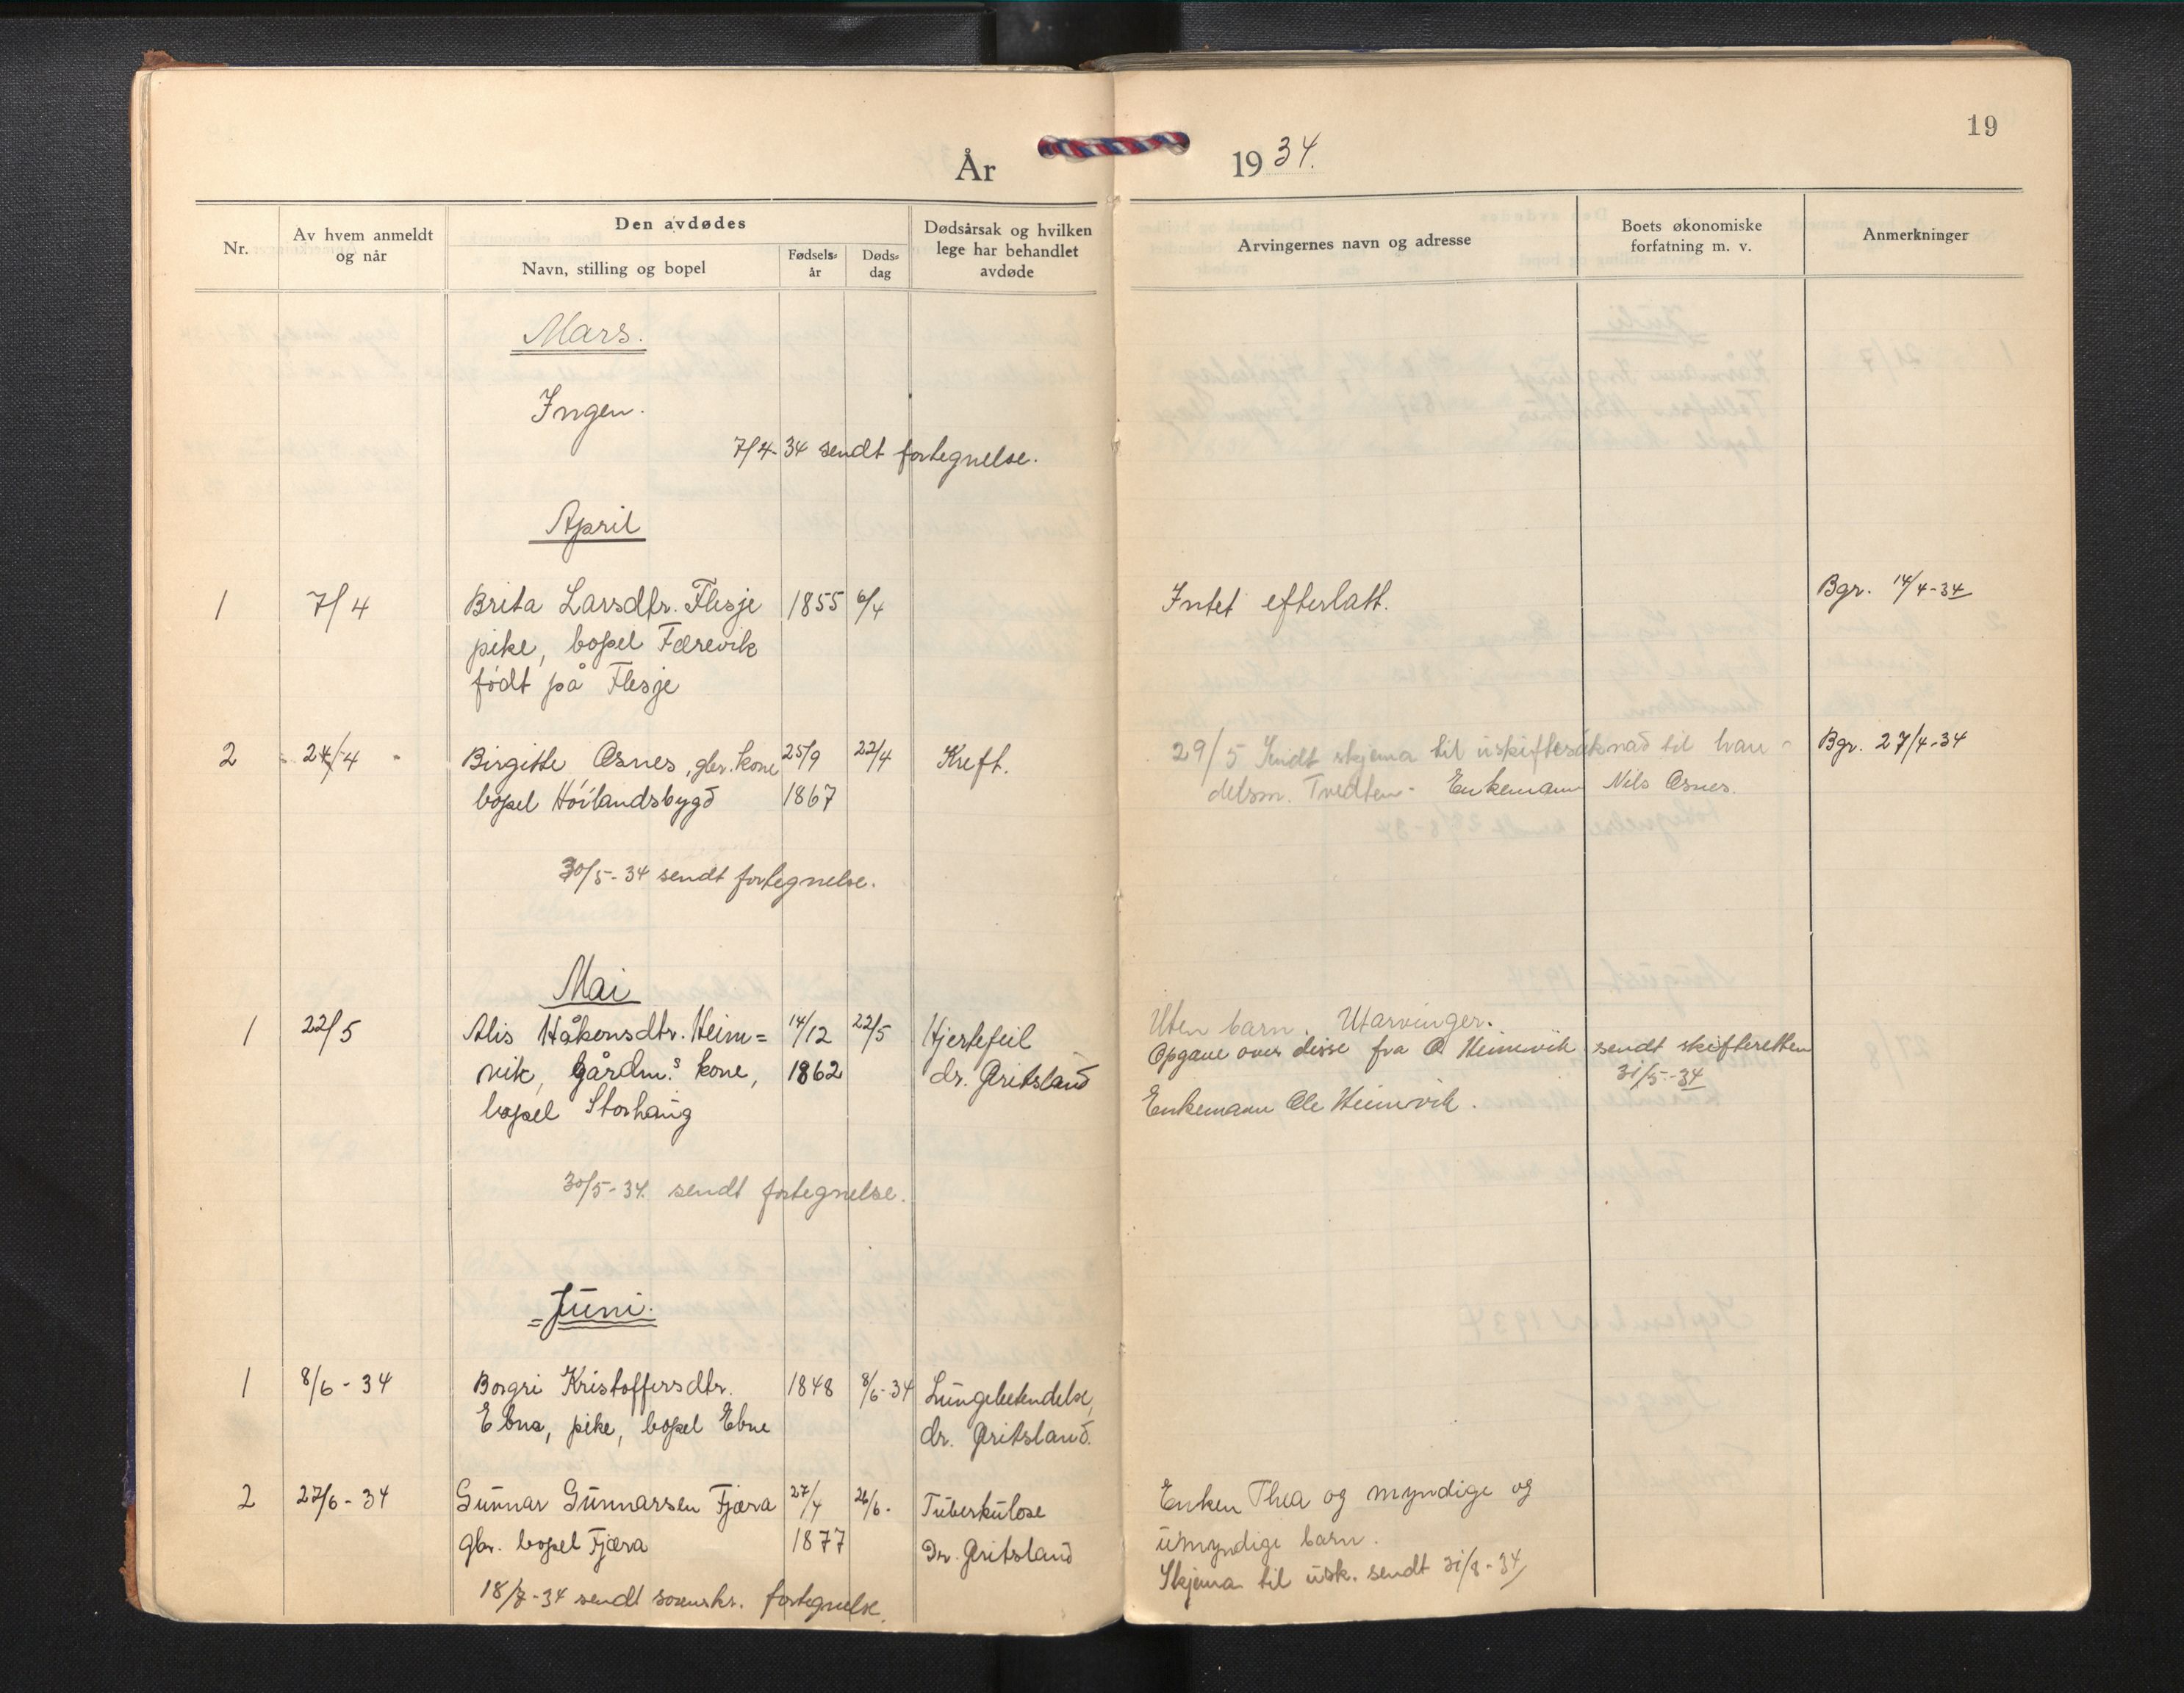 19
År 1934.
Nr.
Av hvem anmeldt og når
Den avdødes
Navn, stilling og bopel
Fødsels-år
Døds-dag
Dødsårsak og hvilken lege har behandlet avdøde
Arvingernes navn og adresse
Boets økonomiske forfatning m. v.
Anmerkninger
Mars.
Ingen.
7/4-34 sendt fortegnelse.
April
1 7/4 Brita Larsdtr. Flesje 1855 6/4 Intet efterlatt. Bgr. 14/4-34
pike, bopel Færevik
født på Flesje
2 24/4 Birgitte Øsnes, gbr. kone 25/9 22/4 Kreft. 29/5 Sendt skjema til uskiftesøknad til han- Bgr. 27/4-34
bopel Höilandsbygd 1867 delsm. Tvedten- Enkemann Nils Øsnes.
30/5-34 sendt fortegnelse.
Mai
1 22/5 Alis Håkonsdtr. Heim= 14/12 22/5 Hjertefeil Uten barn. Utarvinger.
vik, gårdm.s kone, 1862 dr. Gritsland Opgave over disse fra O Heimvik sendt skifteretten
31/5-34
bopel Storhaug Enkemann Ole Heimvik.
30/5-34. sendt fortegnelse.
Juni.
1 8/6-34 Borgri Kristoffersdtr. 1848 8/6-34 Lungebetendelse,
Ebne, pike, bopel Ebne dr. Gritsland.
2 27/6-34 Gunnar Gunnarsen Fjæra 27/4 26/6. Tuberkulose Enken Thea og myndige og
gbr. bopel Fjæra 1877 Dr. Gritsland umyndige barn.
Skjema til usk. sendt 31/8-34
18/7-34 sendt sorenskr. fortegnelse.